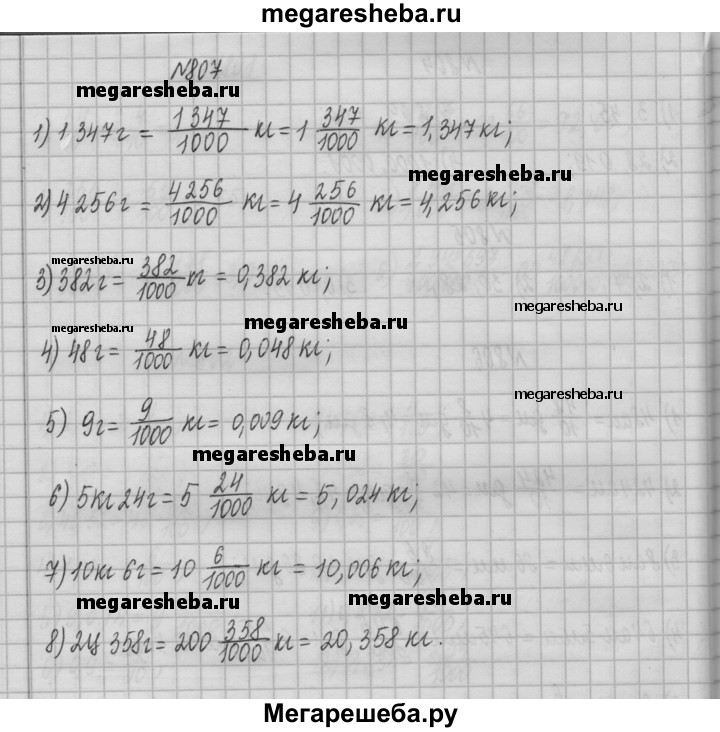 megaresheba.ru
№807
megaresheba.ru
1) 1 347г = 1347/1000 кг = 1 347/1000 кг = 1,347 кг;
megaresheba.ru
2) 4 256г = 4256/1000 кг = 4 256/1000 кг = 4,256 кг;
megaresheba.ru
3) 382г = 382/1000 т = 0,382 кг;
megaresheba.ru
megaresheba.ru
megaresheba.ru
4) 48г = 48/1000 кг = 0,048 кг;
megaresheba.ru
5) 9г = 9/1000 кг = 0,009 кг;
megaresheba.ru
6) 5кг 24г = 5 24/1000 кг = 5,024 кг;
7) 10кг 6г = 10 6/1000 кг = 10,006 кг;
megaresheba.ru
megaresheba.ru
8) 2ц 358г = 200 358/1000 кг = 20,358 кг.
Мегарешеба.ру